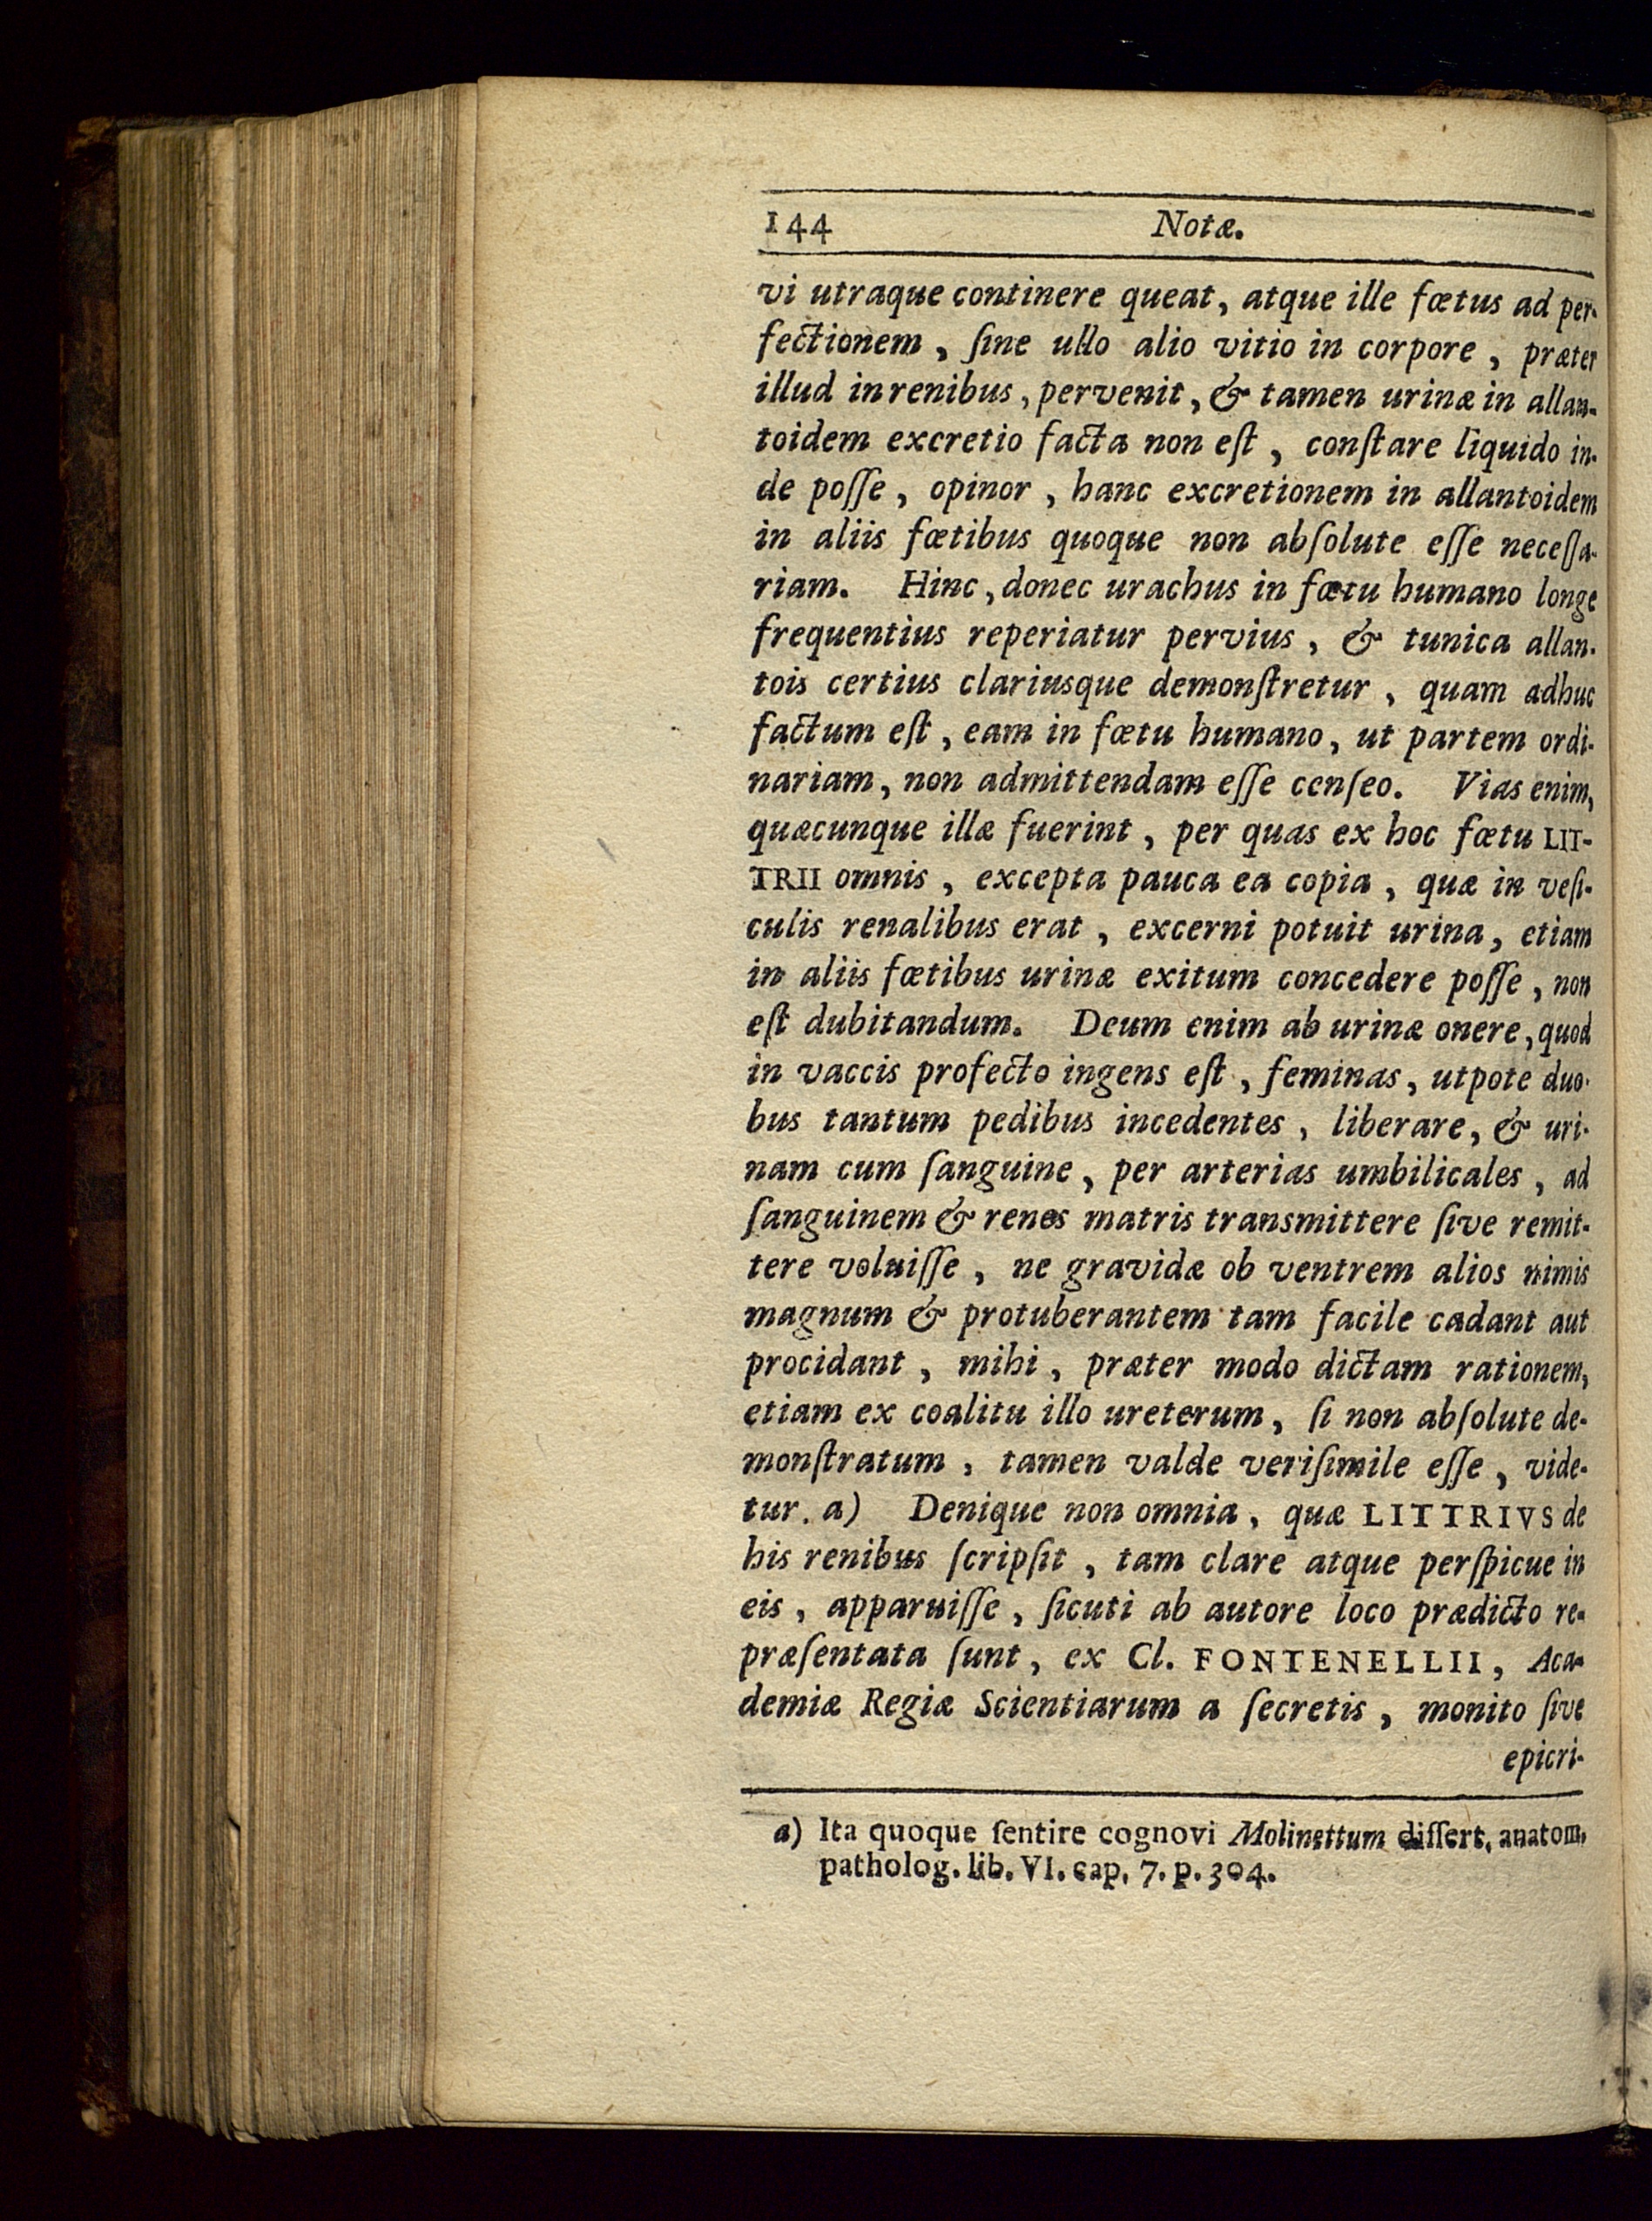 144 Notæ.
vi utraque continere queat, atque ille fœtus ad per-
fectionem, ſine ullo alio vitio in corpore, præter
illud in renibus, pervenit, & tamen urinæ in allan-
toidem excretio facta non eſt, conſtare liquido in-
de poſſe, opinor, hanc excretionem in allantoidem
in aliis fœtibus quoque non abſolute eſſe neceſſa-
riam. Hinc, donec urachus in fœtu humano longe
frequentius reperiatur pervius, & tunica allan-
tois certius clariusque demonſtretur, quam adhuc
factum eſt, eam in fœtu humano, ut partem ordi-
nariam, non admittendam eſſe cenſeo. Vias enim,
quæcunque illæ fuerint, per quas ex hoc fœtu LIT-
TRII omnis, excepta pauca ea copia, quæ in veſi-
culis renalibus erat, excerni potuit urina, etiam
in aliis fœtibus urinæ exitum concedere poſſe, non
eſt dubitandum. Deum enim ab urinæ onere, quod
in vaccis profecto ingens eſt, feminas, utpote duo-
bus tantum pedibus incedentes, liberare, & uri-
nam cum ſanguine, per arterias umbilicales, ad
ſanguinem & renes matris transmittere ſive remit-
tere voluiſſe, ne gravidæ ob ventrem alios nimis
magnum & protuberantem tam facile cadant aut
procidant, mihi, præter modo dictam rationem,
etiam ex coalitu illo ureterum, ſi non abſolute de-
monſtratum, tamen valde veriſimile eſſe, vide-
tur. a) Denique non omnia, quæ LITTRIVS de
his renibus ſcripſit, tam clare atque perſpicue in
eis, apparuiſſe, ſicuti ab autore loco prædicto re-
præſentata ſunt, ex Cl. FONTENELLII, Aca-
demiæ Regiæ Scientiarum a ſecretis, monito ſive
epicri-
a) Ita quoque ſentire cognovi Molinettum diſſert. anatom.
patholog. lib. VI. cap. 7. p. 304.